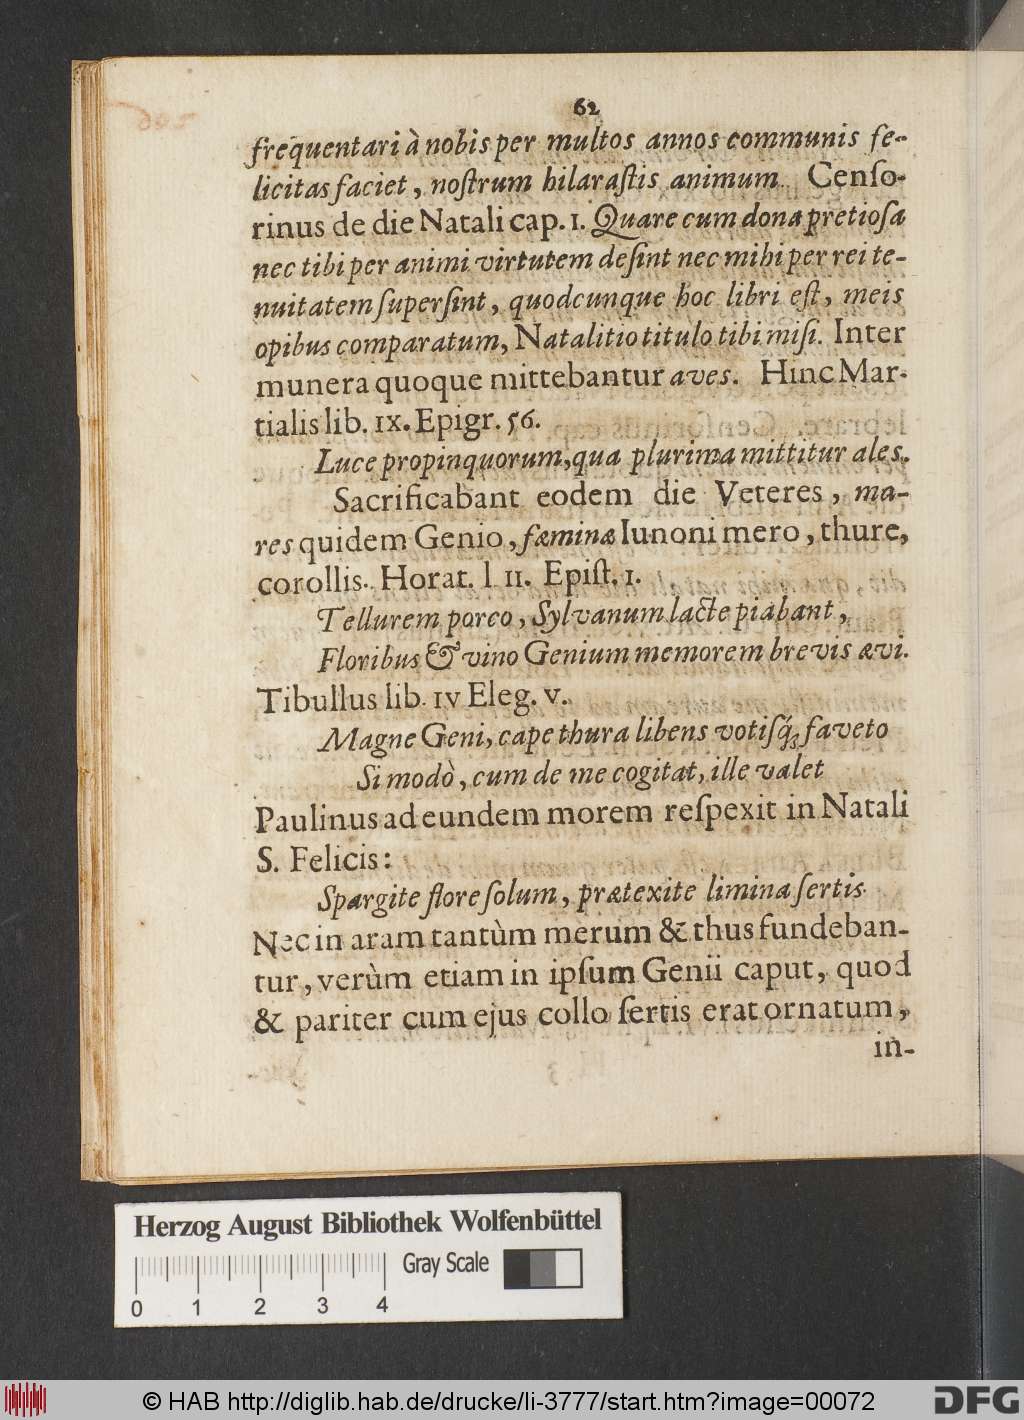 62
freq̃uentari à nobis per multos annos communis fe-
licitas faciet, noſtrum hilaraſtis animum. Cenſo-
rinus de die Natali cap. 1. Quare cum dona pretioſa
nec tibi per animi virtutem deſint nec mihi per rei te-
nuitatem ſuperſint, quodcunque hoc libri eſt, meis
opibus comparatum, Natalitio titulo tibi miſi. Inter
munera quoque mittebantur aves. Hinc Mar-
tialis lib. IX. Epigr. 56.
Luce propinquorum, qua plurima mittitur ales.
Sacrificabant eodem die Veteres, ma-
res quidem Genio, fæminæ Iunoni mero, thure,
corollis. Horat. l II. Epiſt. 1.
Tellurem porco, Sylvanum lacte piabant,
Floribus & vino Genium memorem brevis ævi.
Tibullus lib. IV Eleg. V.
Magne Geni, cape thura libens votiſq́; faveto
Si modò, cum de me cogitat, ille valet
Paulinus ad eundem morem reſpexit in Natali
S. Felicis:
Spargite flore ſolum, prætexite limina ſertis.
Nec in aram tantùm merum & thus fundeban-
tur, verùm etiam in ipſum Genii caput, quod
& pariter cum ejus collo ſertis erat ornatum,
in-
Herzog August Bibliothek Wolfenbüttel
Gray Scale
0 1 2 3 4
© HAB http://diglib.hab.de/drucke/li-3777/start.htm?image=00072
DFG